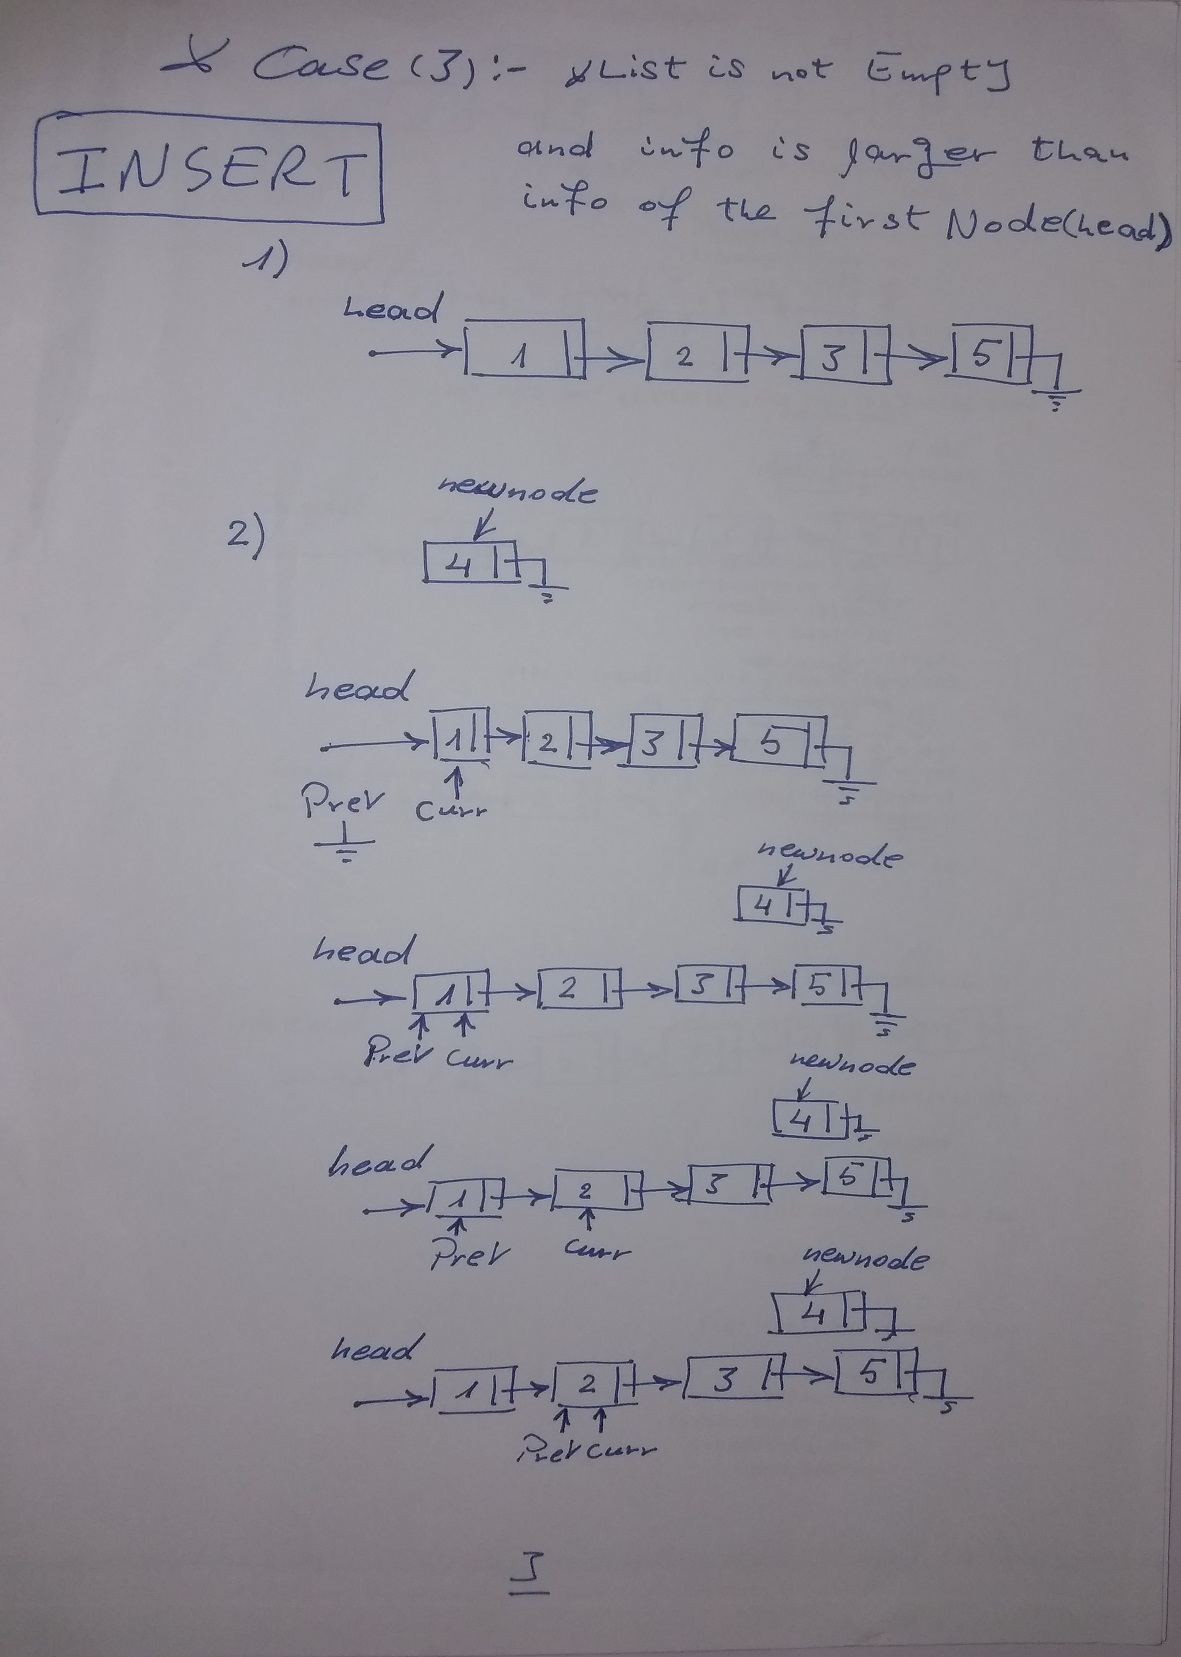 Case (3) :- * List is not Empty
INSERT
and info is larger than
info of the first Node(head)
1)
head
1 2 3 5
newnode
2)
4
head
1 2 3 5
Prev curr
newnode
4
head
1 2 3 5
Prev curr
newnode
4
head
1 2 3 5
Prev curr
newnode
4
head
1 2 3 5
Prev curr
3